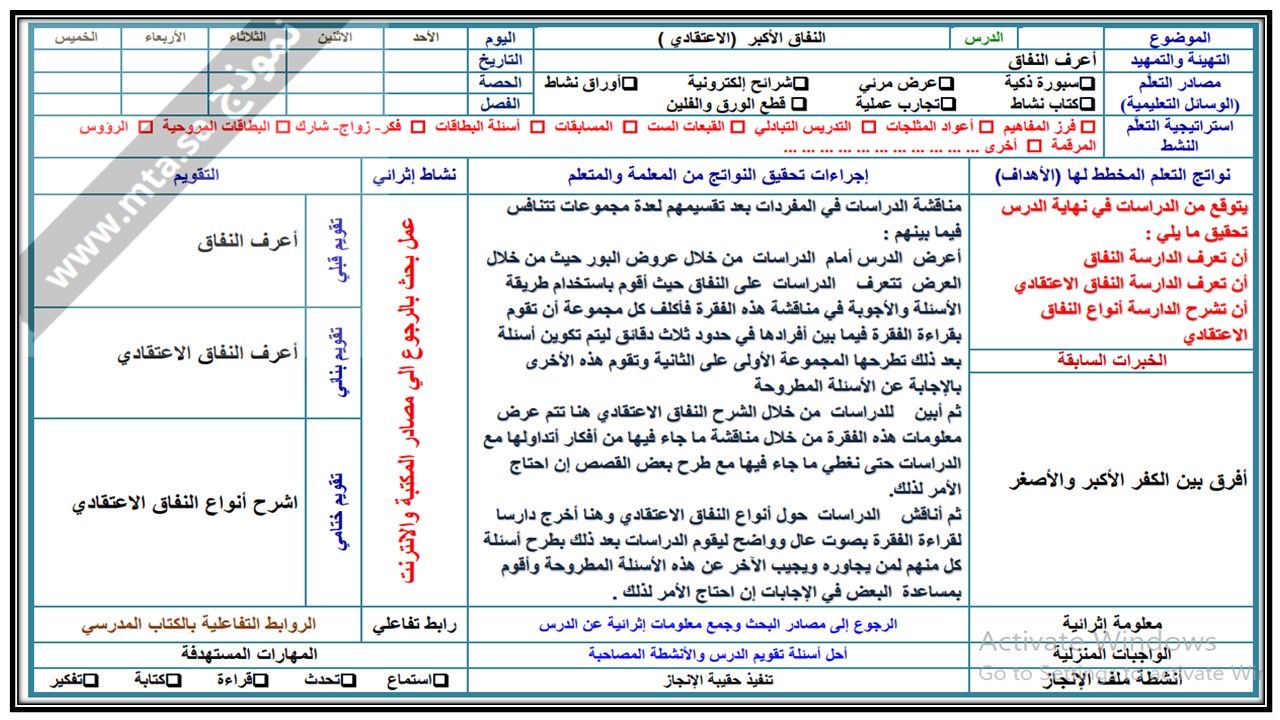 الموضوع
الدرس
النفاق الأكبر (الاعتقادي )
اليوم
الأحد
الاثنين
الثلاثاء
الأربعاء
الخميس
التهيئة والتمهيد
أعرف النفاق
التاريخ
مصادر التعلّم
(الوسائل التعليمية)
سبورة ذكية
عرض مرئي
شرائح إلكترونية
أوراق نشاط
الحصة
كتاب نشاط
تجارب عملية
قطع الورق والفلين
الفصل
استراتيجية التعلّم
النشط
فرز المفاهيم
أعواد المثلجات
التدريس التبادلي
القبعات الست
المسابقات
أسئلة البطاقات
فكر- زواج- شارك
البطاقات المروحية
الرؤوس
المرقمة
أخرى ... ... ... ... ... ... ... ... ... ... ...
نواتج التعلم المخطط لها (الأهداف)
إجراءات تحقيق النواتج من المعلمة والمتعلم
نشاط إثرائي
التقويم
يتوقع من الدراسات في نهاية الدرس
تحقيق ما يلي :
أن تعرف الدارسة النفاق
أن تعرف الدارسة النفاق الاعتقادي
أن تشرح الدارسة أنواع النفاق
الاعتقادي
الخبرات السابقة
أفرق بين الكفر الأكبر والأصغر
مناقشة الدراسات في المفردات بعد تقسيمهم لعدة مجموعات تتنافس
فيما بينهم :
أعرض الدرس أمام الدراسات من خلال عروض البور حيث من خلال
العرض تتعرف الدراسات على النفاق حيث أقوم باستخدام طريقة
الأسئلة والأجوبة في مناقشة هذه الفقرة فأكلف كل مجموعة أن تقوم
بقراءة الفقرة فيما بين أفرادها في حدود ثلاث دقائق ليتم تكوين أسئلة
بعد ذلك تطرحها المجموعة الأولى على الثانية وتقوم هذه الأخرى
بالإجابة عن الأسئلة المطروحة
ثم أبين للدراسات من خلال الشرح النفاق الاعتقادي هنا تتم عرض
معلومات هذه الفقرة من خلال مناقشة ما جاء فيها من أفكار أتداولها مع
الدراسات حتى نغطي ما جاء فيها مع طرح بعض القصص إن احتاج
الأمر لذلك.
ثم أناقش الدراسات حول أنواع النفاق الاعتقادي وهنا أخرج دارسا
لقراءة الفقرة بصوت عال وواضح ليقوم الدراسات بعد ذلك بطرح أسئلة
كل منهم لمن يجاوره ويجيب الآخر عن هذه الأسئلة المطروحة وأقوم
بمساعدة البعض في الإجابات إن احتاج الأمر لذلك .
عمل بحث بالرجوع الي مصادر المكتبة والانترنت
تقويم قبلي
أعرف النفاق
تقويم بنائي
أعرف النفاق الاعتقادي
تقويم ختامي
اشرح أنواع النفاق الاعتقادي
معلومة إثرائية
الرجوع إلى مصادر البحث وجمع معلومات إثرائية عن الدرس
رابط تفاعلي
الروابط التفاعلية بالكتاب المدرسي
الواجبات المنزلية
أحل أسئلة تقويم الدرس والأنشطة المصاحبة
المهارات المستهدفة
أنشطة ملف الإنجاز
تنفيذ حقيبة الإنجاز
استماع
تحدث
قراءة
كتابة
تفكير
نموذج www.mta.sa
Activate Windows
Go to Settings to activate Wi